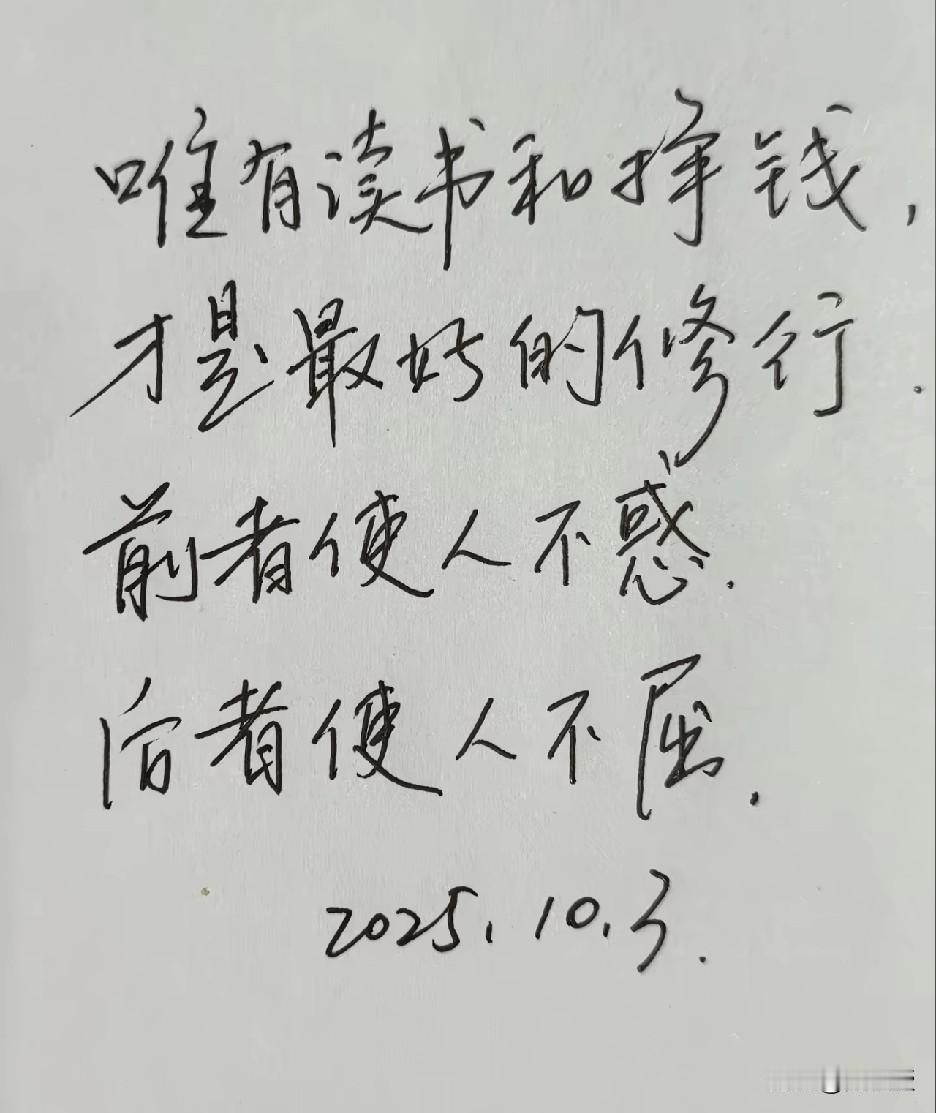 唯有读书和挣钱,
才是最好的修行.
前者使人不惑.
后者使人不屈.
2025.10.3.